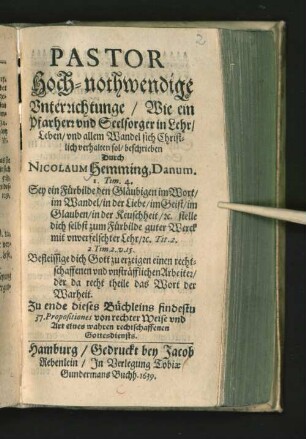 2
PASTOR
Hoch-nothwendige
Vnterrichtunge / Wie ein
Pfarherr vnd Seelsorger in Lehr/
Leben/ vnd allem Wandel sich Christ-
lich verhalten sol/ beschrieben
Durch
NICOLAUM Hemming, Danum.
1. Tim. 4.
Sey ein Fürbilde den Gläubigen im Wort/
im Wandel/ in der Liebe/ im Geist/ im
Glauben/ in der Keuschheit/ &c. stelle
dich selbst zum Fürbilde guter Werck
mit vnverfelschter Lehr/ &c. Tit. 2.
2 Tim. 2. v. 15.
Befleissige dich Gott zu erzeigen einen recht-
schaffenen vnd vnsträfflichen Arbeiter/
der da recht theile das Wort der
Warheit.
Zu ende dieses Büchleins findestu
57. Propositiones von rechter Weise vnd
Art eines wahren rechtschaffenen
Gottesdiensts.
Hamburg / Gedruckt bey Jacob
Rebenlein / In Verlegung Tobiæ
Gundermans Buchh. 1639.